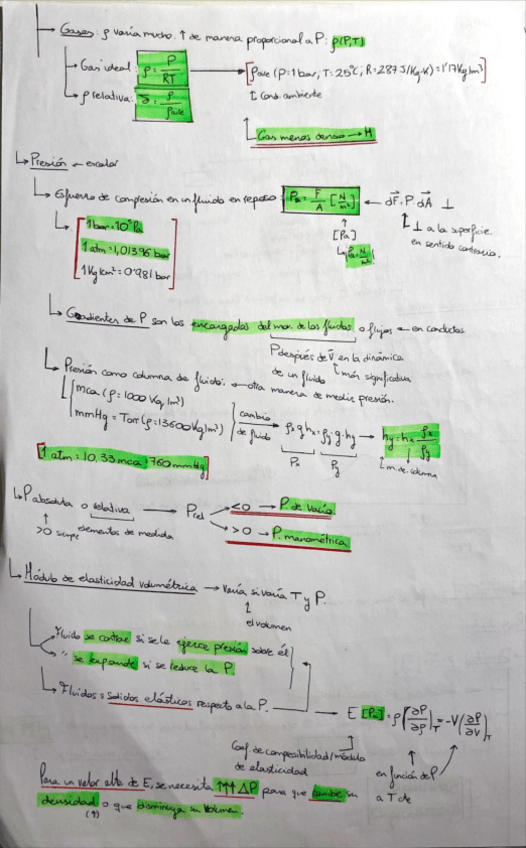 Gases: ρ varía mucho. ↑ de manera proporcional a P: ρ(P,T)
Gas ideal: ρ = P/RT → [ρaire (P=1bar, T=25°C, R=287 J/Kg·K) = 1'17 Kg/m³]
ρ relativa: = ρ/ρaire
↳ Cond. ambiente
Gas menos denso → H
Presión → escalar
Esfuerzo de compresión en un fluido en reposo: = F/A [N/m²] ← dF = P·dA ⊥
[Pa]
Pa = N/m²
⊥ a la superficie
en sentido contrario.
1 bar = 10⁵ Pa
1 atm = 1,01396 bar
1 Kg/cm² = 0'981 bar
Gradientes de P son los encargados del mov. de los fluidos o flujos en conductos
P después de V en la dinámica
de un fluido
más significativa
Presión como columna de fluido: otra manera de medir presión.
mca (ρ = 1000 Kg/m³)
mmHg = Torr (ρ = 13600 Kg/m³)
cambio
de fluido
ρx·g·hx = ρy·g·hy → hy = hx ρx/ρy
Px Py
m. de columna
1 atm = 10,33 mca = 760 mmHg
P absoluta o relativa → Prel
<0 → P. de vacío
>0 → P. manométrica
>0 siempre
elementos de medida
Módulo de elasticidad volumétrica → Varía si varía T y P.
el volumen
Fluido se contrae si se le ejerce presión sobre él
" se expande si se reduce la P.
Fluidos = sólidos elásticos respecto a la P. → E [Pa] = ρ(∂P/∂ρ)T = -V(∂P/∂V)T
Coef. de compresibilidad/módulo
de elasticidad
en función de P
a T cte
Para un valor alto de E, se necesita ↑↑↑ ΔP para que cambie su
densidad o que disminuya su volumen.
(↑)